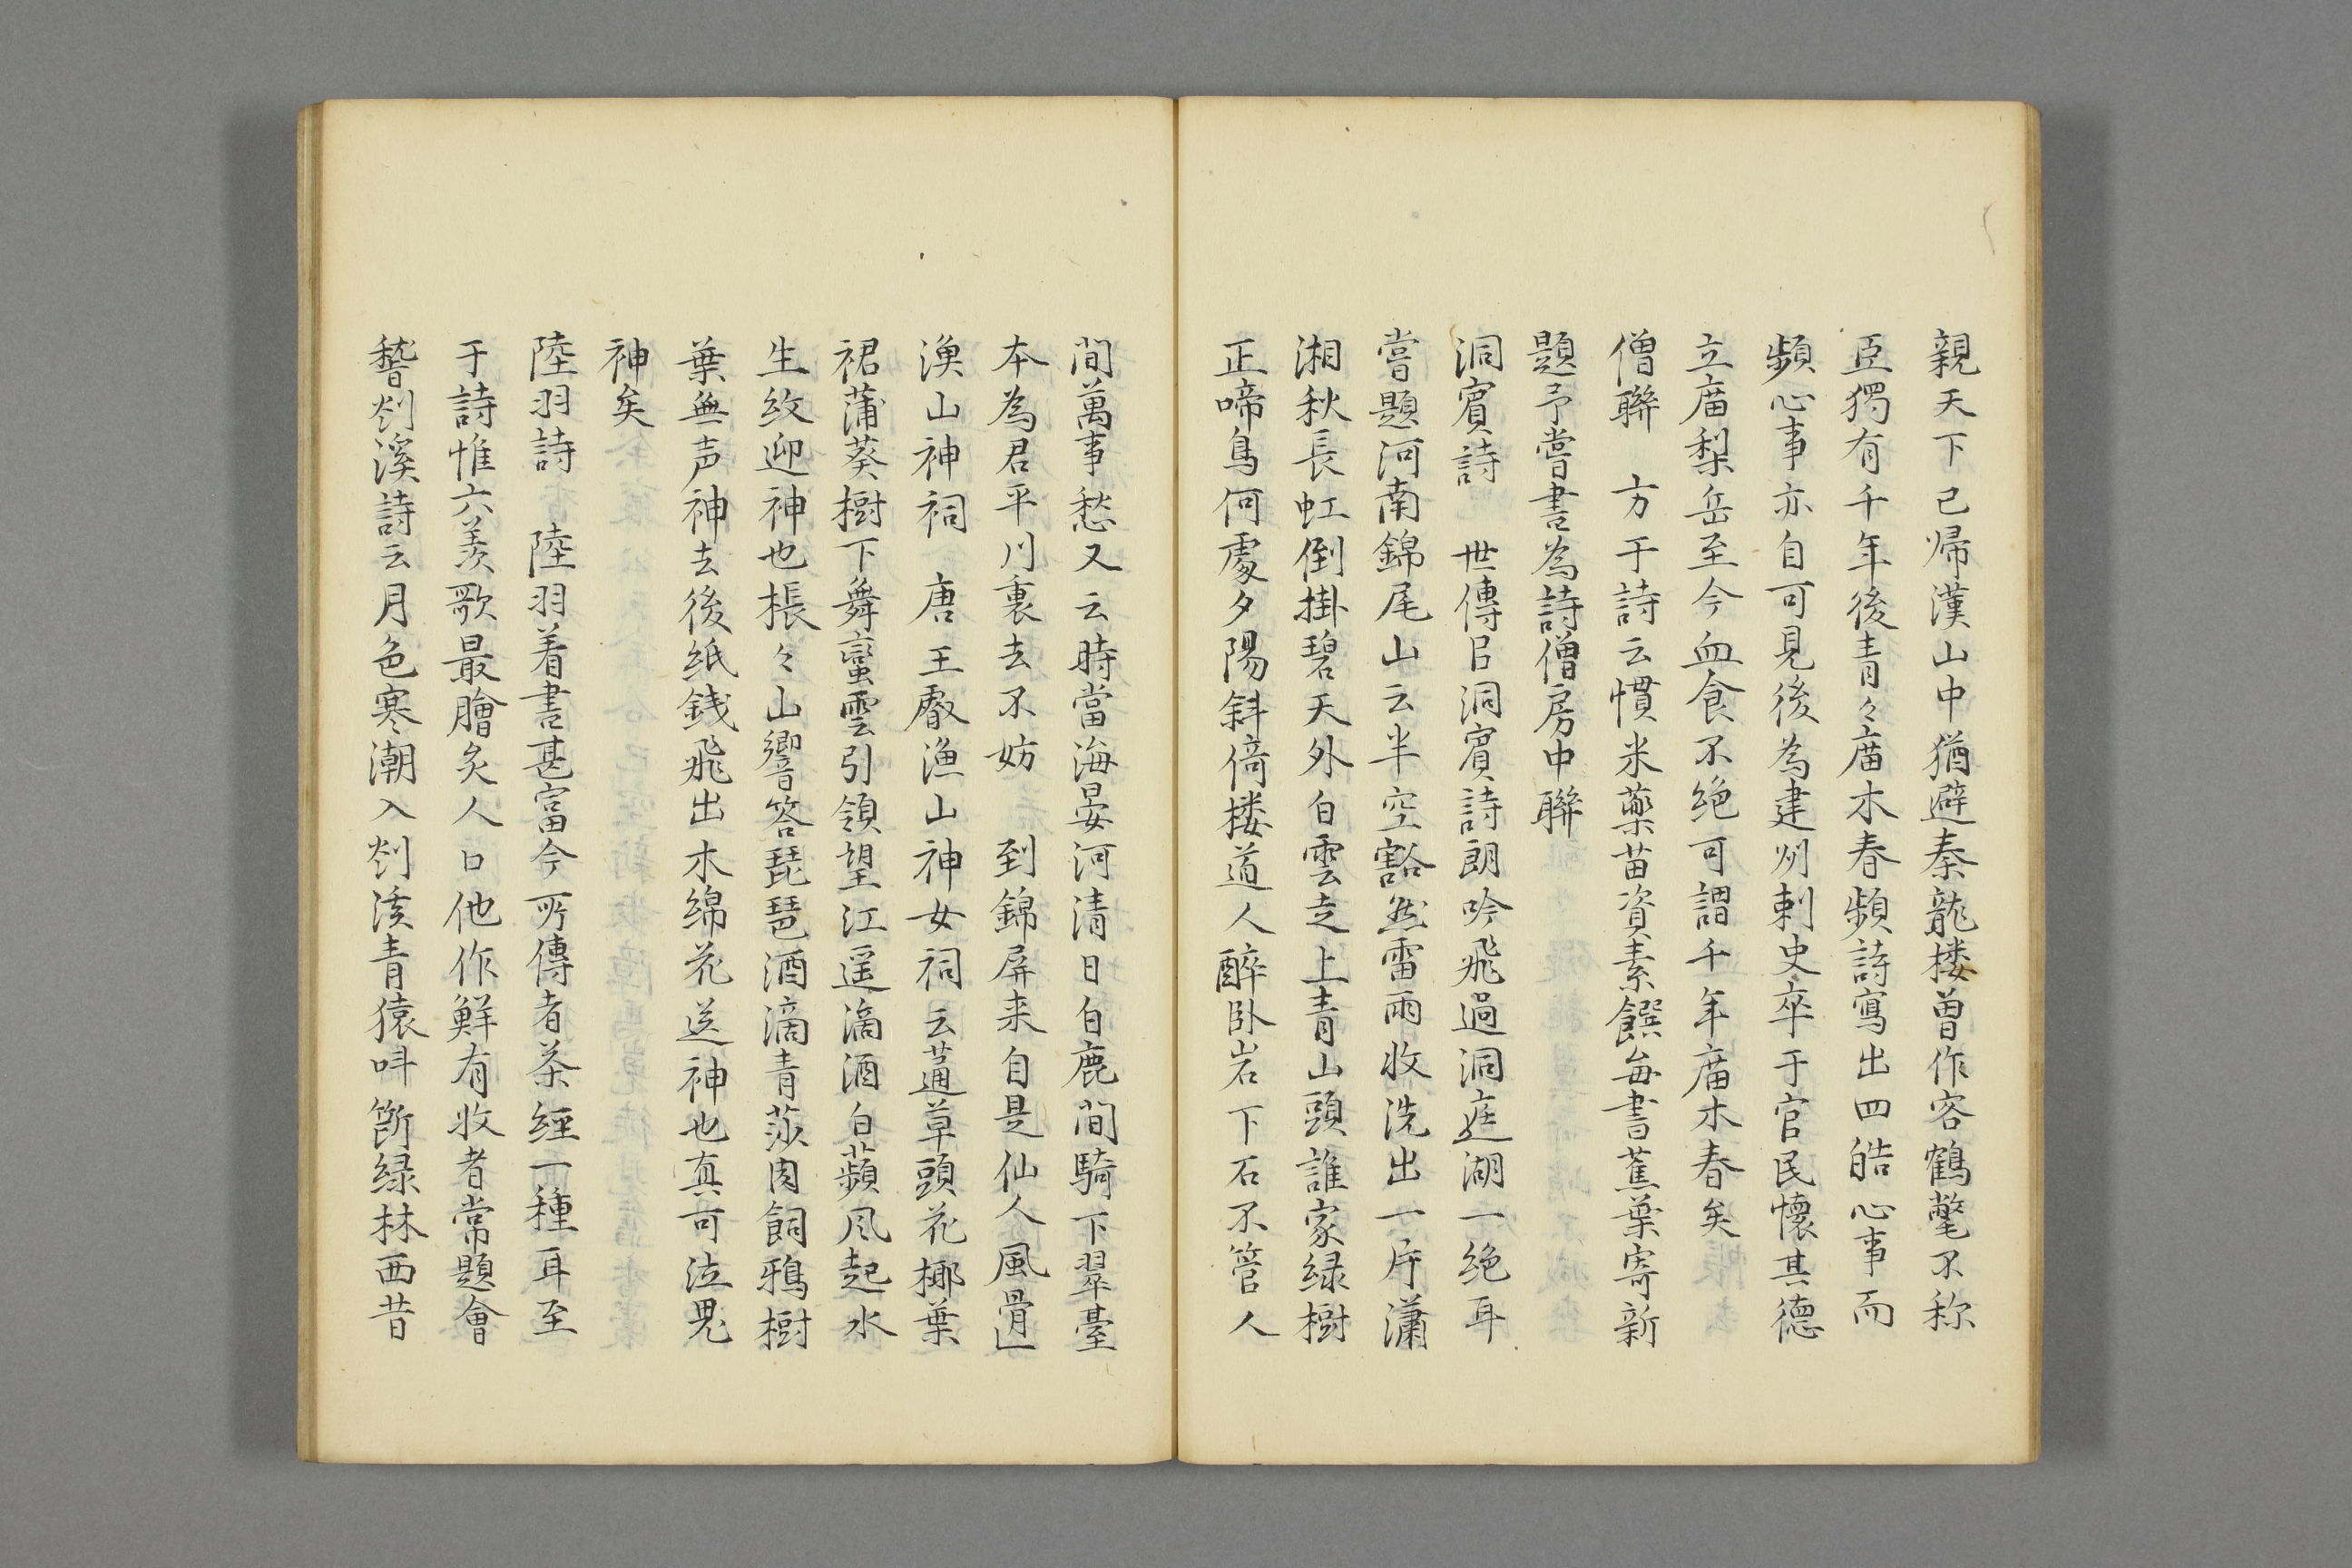 親天下已帰漢山中猶避秦龍楼曽作客鶴氅不称
臣獨有千年後青々庿木春頻詩寫出四皓心事而
頻心事亦自可見後為建州刺史卒于官民懷其德
立庿梨岳至今血食不絶可謂千年庿木春矣
僧聯　方干詩云慣米藥苗資素饌每書蕉葉寄新
題予嘗書為詩僧房中聯
洞賓詩　世傳吕洞賓詩朗吟飛過洞庭湖一絶耳
嘗題河南錦尾山云半空豁然雷雨收洗出一片瀟
湘秋長虹倒掛碧天外白雲走上青山頭誰家緑樹
正啼鳥何處夕陽斜倚楼道人醉卧岩下石不管人
間萬事愁又云時當海晏河清日白鹿間騎下翠臺
本為君平川裏去不妨　到錦屏来自是仙人風骨
漁山神祠　唐王睿漁山神女祠云䔕草頭花揶葉
裙蒲葵樹下舞蠻雲引領望江遥滴酒白蘋風起水
生紋迎神也棖々山響答琵琶酒滴青莎肉飼鴉樹
葉無声神去後紙銭飛出木绵花送神也真可泣鬼
神矣
陸羽詩　陸羽着書甚富今所傳者茶經一種耳至
于詩惟六羡歌最膾炙人口他作鮮有收者常題會
稽剡溪詩云月色寒潮入剡溪青猿呌斷緑林西昔